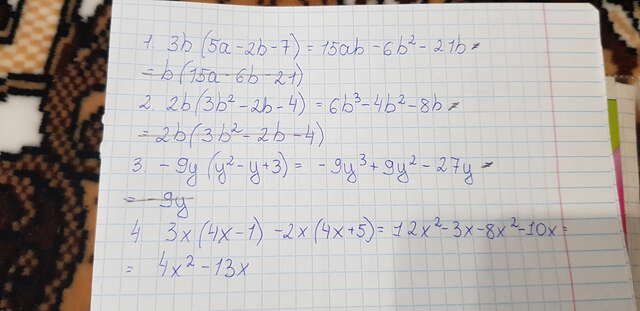 1. 3b (5a - 2b - 7) = 15ab - 6b² - 21b =
= b (15a - 6b - 21)
2. 2b (3b² - 2b - 4) = 6b³ - 4b² - 8b =
= 2b (3b² - 2b - 4)
3. - 9y (y² - y + 3) = - 9y³ + 9y² - 27y =
= - 9y
4 3x (4x - 1) - 2x (4x + 5) = 12x² - 3x - 8x² - 10x =
= 4x² - 13x